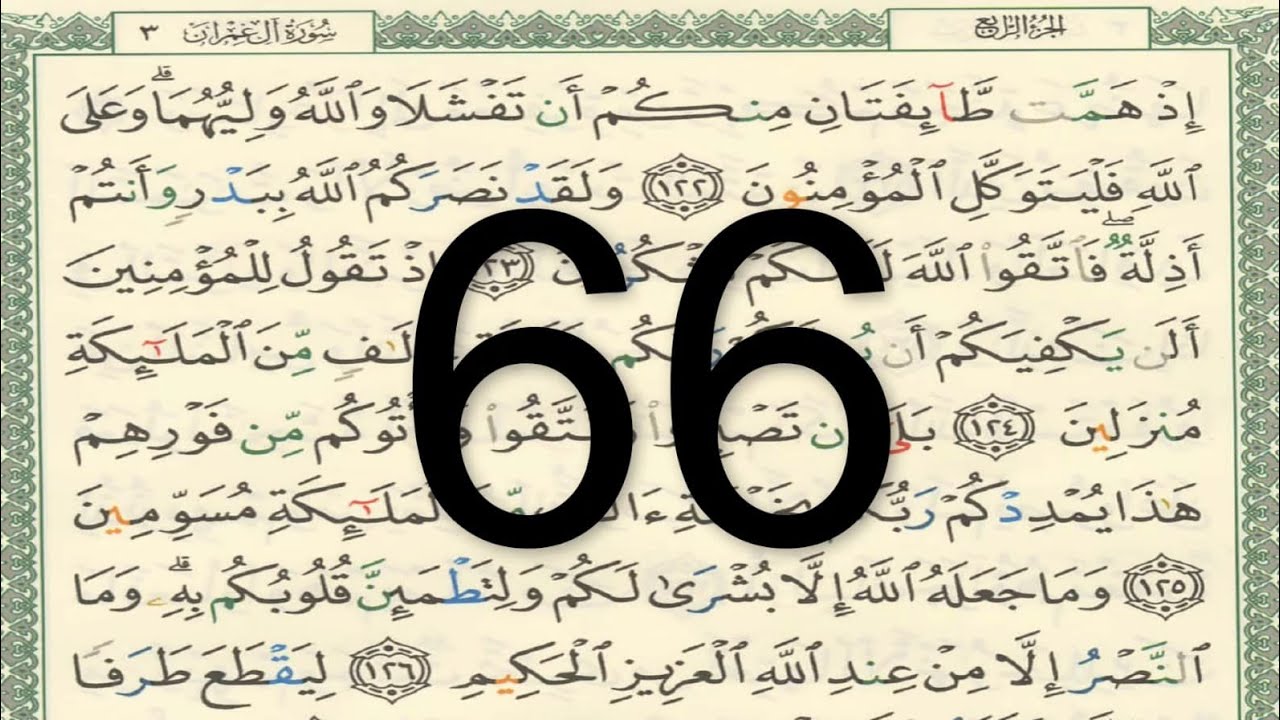 الجُزْءُ الرَّابِعُ
سُورَةُ آلِ عِمْرَانَ ٣
إِذْ هَمَّت طَّآئِفَتَانِ مِنكُمْ أَن تَفْشَلَا وَٱللَّهُ وَلِيُّهُمَاۗ وَعَلَى
ٱللَّهِ فَلْيَتَوَكَّلِ ٱلْمُؤْمِنُونَ ١٢٢ وَلَقَدْ نَصَرَكُمُ ٱللَّهُ بِبَدْرٍ وَأَنتُمْ
أَذِلَّةٌۖ فَٱتَّقُوا۟ ٱللَّهَ إِذْ تَقُولُ لِلْمُؤْمِنِينَ
أَلَن يَكْفِيَكُمْ أَن مِّنَ ٱلْمَلَٰٓئِكَةِ
مُنزَلِينَ ١٢٤ بَلَىٰٓ مِّن فَوْرِهِمْ
هَٰذَا يُمْدِدْكُمْ مُسَوِّمِينَ
١٢٥ وَمَا جَعَلَهُ ٱللَّهُ إِلَّا بُشْرَىٰ لَكُمْ وَلِتَطْمَئِنَّ قُلُوبُكُم بِهِۦۗ وَمَا
ٱلنَّصْرُ إِلَّا مِنْ عِندِ ٱللَّهِ ٱلْعَزِيزِ ٱلْحَكِيمِ ١٢٦ لِيَقْطَعَ طَرَفًا
66